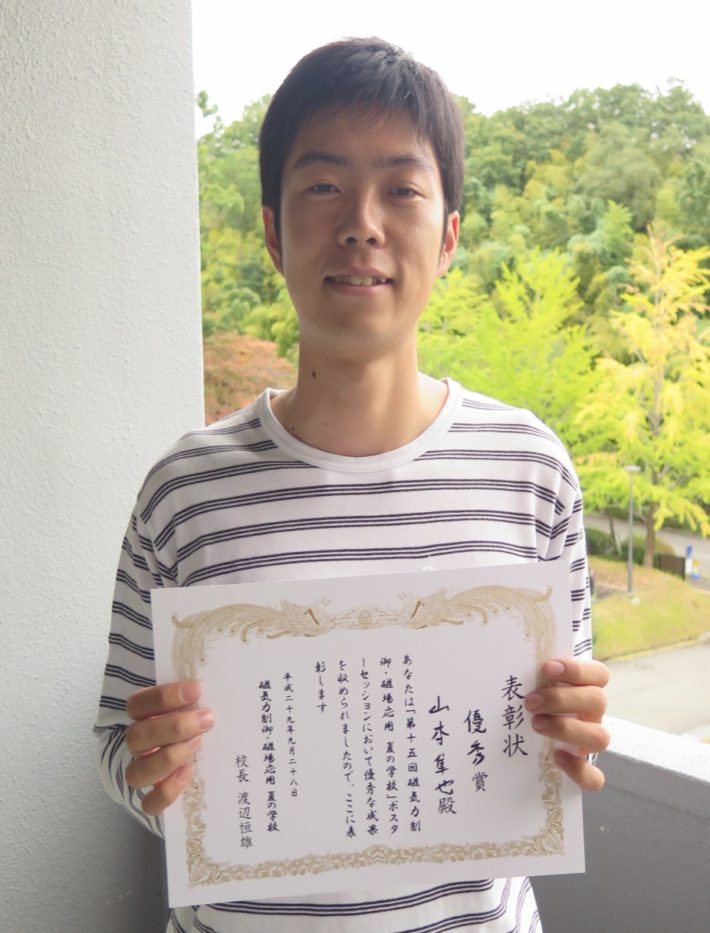 表彰状
優秀賞
山本隼也殿
あなたは「第十五回磁気力制
御・磁場応用 夏の学校」ポスタ
ーセッションにおいて優秀な成果
を収められましたので、ここに表
彰します
平成二十九年九月二十八日
磁気力制御・磁場応用 夏の学校
校長 渡辺恒雄